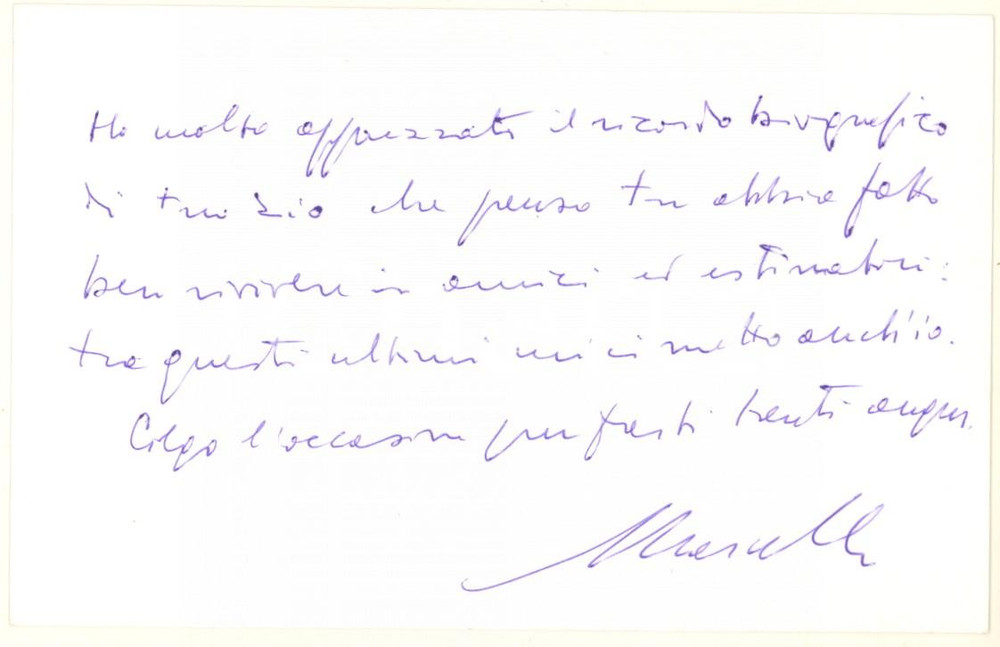 Ho molto apprezzato il ricordo biografico
di tuo zio che penso tu abbia fatto
ben rivivere in amici ed estimatori:
tra questi ultimi mi ci metto anch'io.
Colgo l'occasione per farti tanti auguri.
Marcello